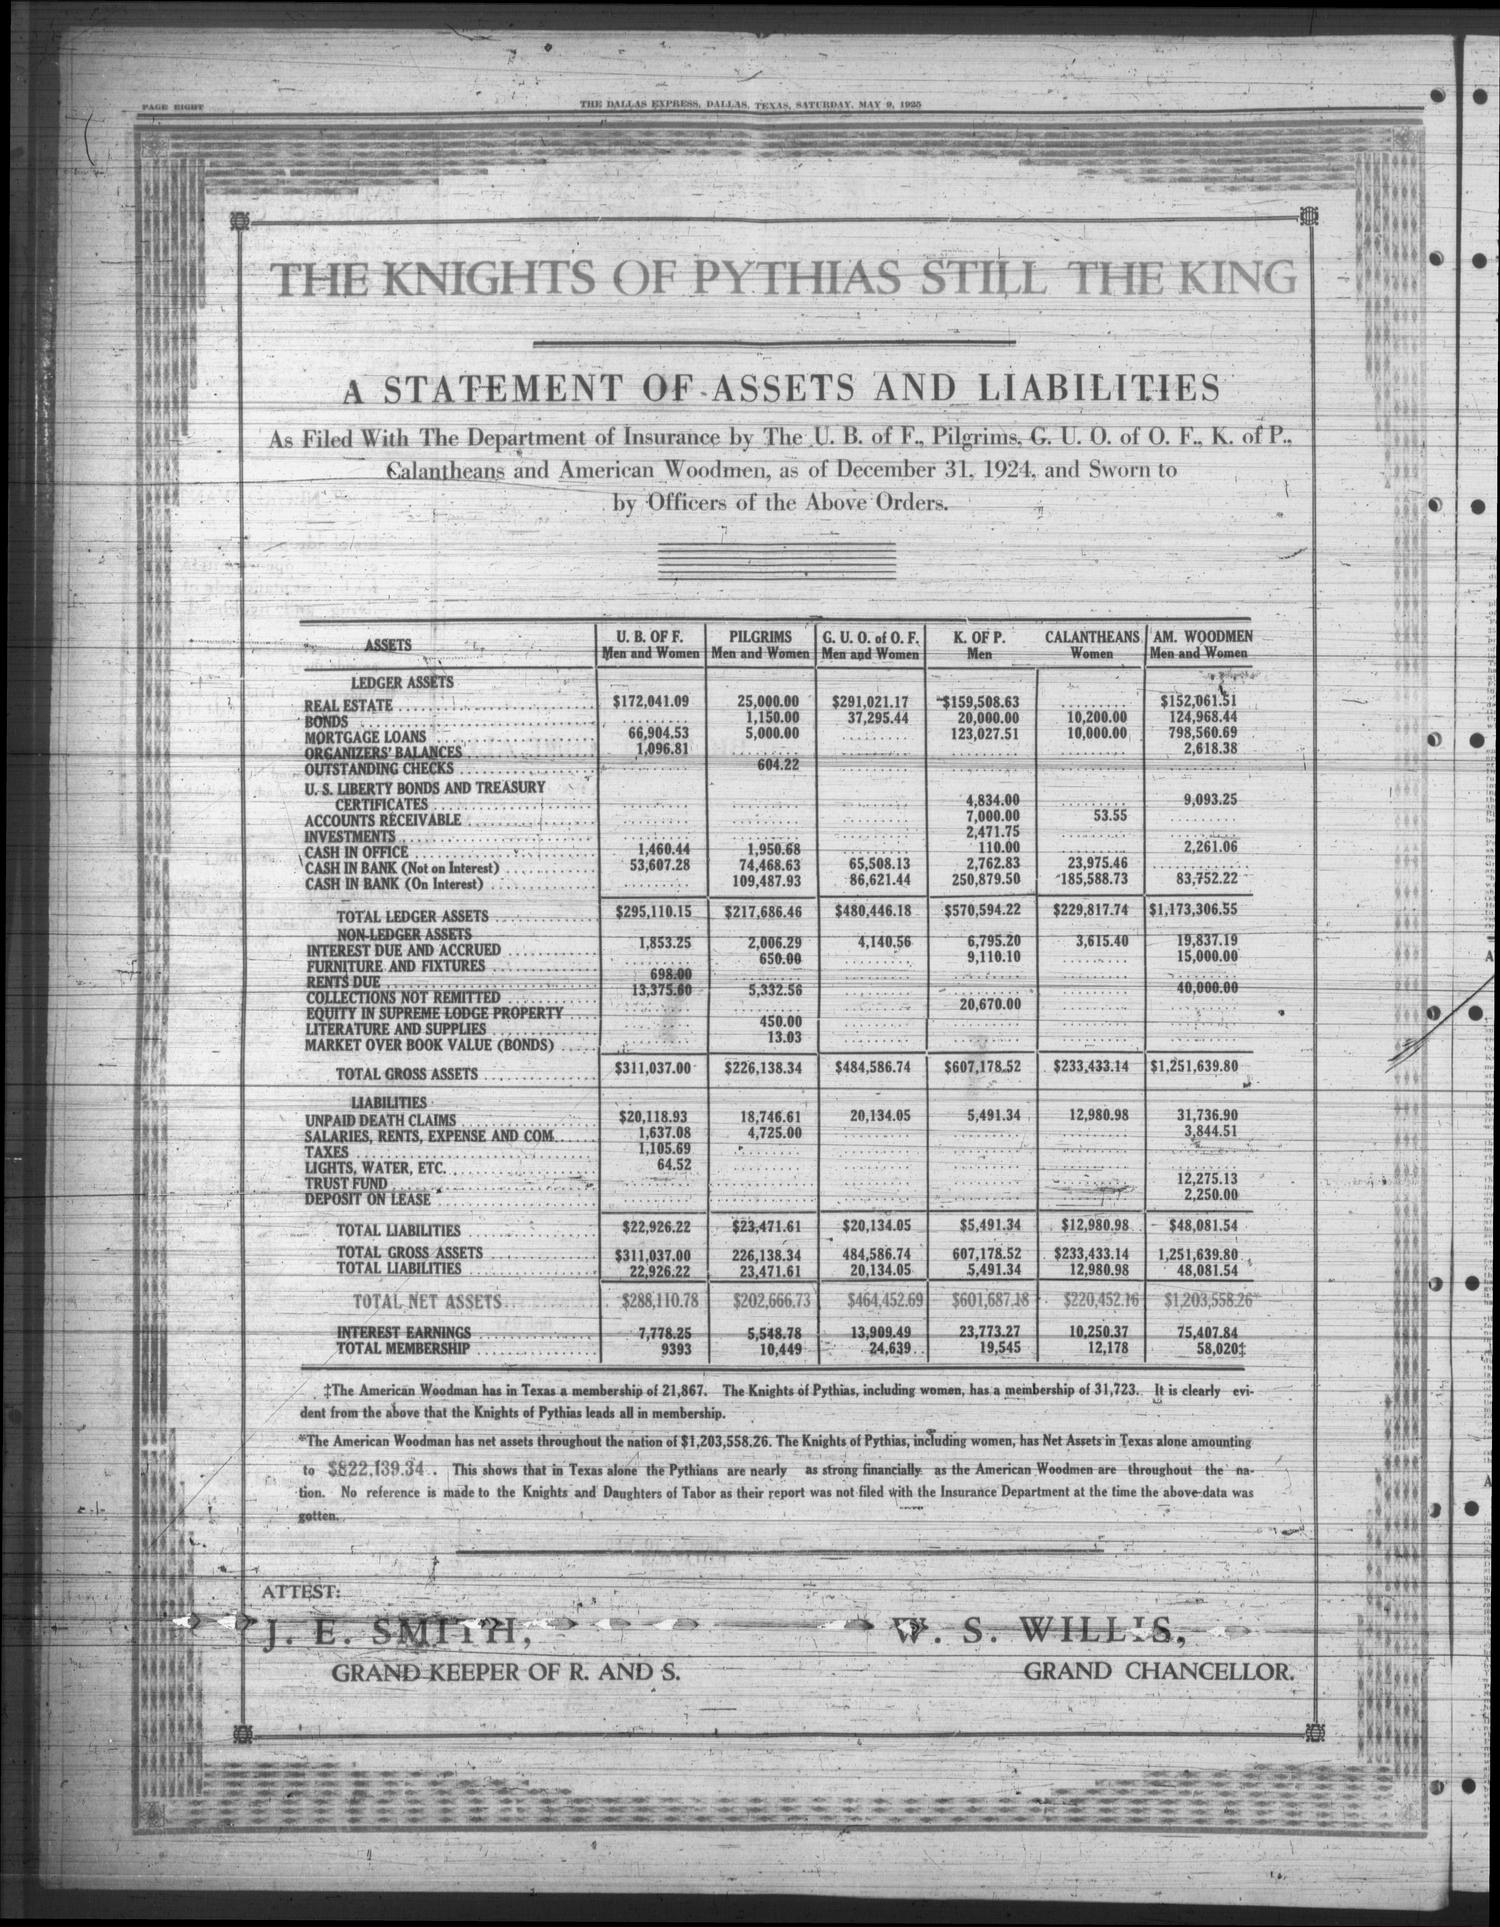 PAGE EIGHT
THE DALLAS EXPRESS, DALLAS, TEXAS, SATURDAY, MAY 9, 1925
THE KNIGHTS OF PYTHIAS STILL THE KING
A STATEMENT OF ASSETS AND LIABILITIES
As Filed With The Department of Insurance by The U. B. of F., Pilgrims, G. U. O. of O. F., K. of P.,
Calantheans and American Woodmen, as of December 31, 1924, and Sworn to
by Officers of the Above Orders.
ASSETS U. B. OF F. PILGRIMS G. U. O. of O. F. K. OF P. CALANTHEANS AM. WOODMEN
Men and Women Men and Women Men and Women Men Women Men and Women
LEDGER ASSETS
REAL ESTATE $172,041.09 25,000.00 $291,021.17 $159,508.63 ........ $152,061.51
BONDS ........ 1,150.00 37,295.44 20,000.00 10,200.00 124,968.44
MORTGAGE LOANS 66,904.53 5,000.00 ........ 123,027.51 10,000.00 798,560.69
ORGANIZERS' BALANCES 1,096.81 ........ ........ ........ ........ 2,618.38
OUTSTANDING CHECKS ........ 604.22 ........ ........ ........ ........
U. S. LIBERTY BONDS AND TREASURY
CERTIFICATES ........ ........ ........ 4,834.00 ........ 9,093.25
ACCOUNTS RECEIVABLE ........ ........ ........ 7,000.00 53.55 ........
INVESTMENTS ........ ........ ........ 2,471.75 ........ ........
CASH IN OFFICE 1,460.44 1,950.68 ........ 110.00 ........ 2,261.06
CASH IN BANK (Not on Interest) 53,607.28 74,468.63 65,508.13 2,762.83 23,975.46 ........
CASH IN BANK (On Interest) ........ 109,487.93 86,621.44 250,879.50 185,588.73 83,752.22
TOTAL LEDGER ASSETS $295,110.15 $217,686.46 $480,446.18 $570,594.22 $229,817.74 $1,173,306.55
NON-LEDGER ASSETS
INTEREST DUE AND ACCRUED 1,853.25 2,006.29 4,140.56 6,795.20 3,615.40 19,837.19
FURNITURE AND FIXTURES ........ 650.00 ........ 9,110.10 ........ 15,000.00
RENTS DUE 698.00 ........ ........ ........ ........ ........
COLLECTIONS NOT REMITTED 13,375.60 5,332.56 ........ ........ ........ 40,000.00
EQUITY IN SUPREME LODGE PROPERTY ........ ........ ........ 20,670.00 ........ ........
LITERATURE AND SUPPLIES ........ 450.00 ........ ........ ........ ........
MARKET OVER BOOK VALUE (BONDS) ........ 13.03 ........ ........ ........ ........
TOTAL GROSS ASSETS $311,037.00 $226,138.34 $484,586.74 $607,178.52 $233,433.14 $1,251,639.80
LIABILITIES
UNPAID DEATH CLAIMS $20,118.93 18,746.61 20,134.05 5,491.34 12,980.98 31,736.90
SALARIES, RENTS, EXPENSE AND COM. 1,637.08 4,725.00 ........ ........ ........ 3,844.51
TAXES 1,105.69 ........ ........ ........ ........ ........
LIGHTS, WATER, ETC. 64.52 ........ ........ ........ ........ ........
TRUST FUND ........ ........ ........ ........ ........ 12,275.13
DEPOSIT ON LEASE ........ ........ ........ ........ ........ 2,250.00
TOTAL LIABILITIES $22,926.22 $23,471.61 $20,134.05 $5,491.34 $12,980.98 $48,081.54
TOTAL GROSS ASSETS $311,037.00 226,138.34 484,586.74 607,178.52 $233,433.14 1,251,639.80
TOTAL LIABILITIES 22,926.22 23,471.61 20,134.05 5,491.34 12,980.98 48,081.54
TOTAL NET ASSETS $288,110.78 $202,666.73 $464,452.69 $601,687.18 $220,452.16 $1,203,558.26*
INTEREST EARNINGS 7,778.25 5,548.78 13,909.49 23,773.27 10,250.37 75,407.84
TOTAL MEMBERSHIP 9393 10,449 24,639 19,545 12,178 58,020‡
‡The American Woodman has in Texas a membership of 21,867. The Knights of Pythias, including women, has a membership of 31,723. It is clearly evi-
dent from the above that the Knights of Pythias leads all in membership.
*The American Woodman has net assets throughout the nation of $1,203,558.26. The Knights of Pythias, including women, has Net Assets in Texas alone amounting
to $822,139.34. This shows that in Texas alone the Pythians are nearly as strong financially as the American Woodmen are throughout the na-
tion. No reference is made to the Knights and Daughters of Tabor as their report was not filed with the Insurance Department at the time the above data was
gotten.
ATTEST:
J. E. SMITH, W. S. WILLIS,
GRAND KEEPER OF R. AND S. GRAND CHANCELLOR.